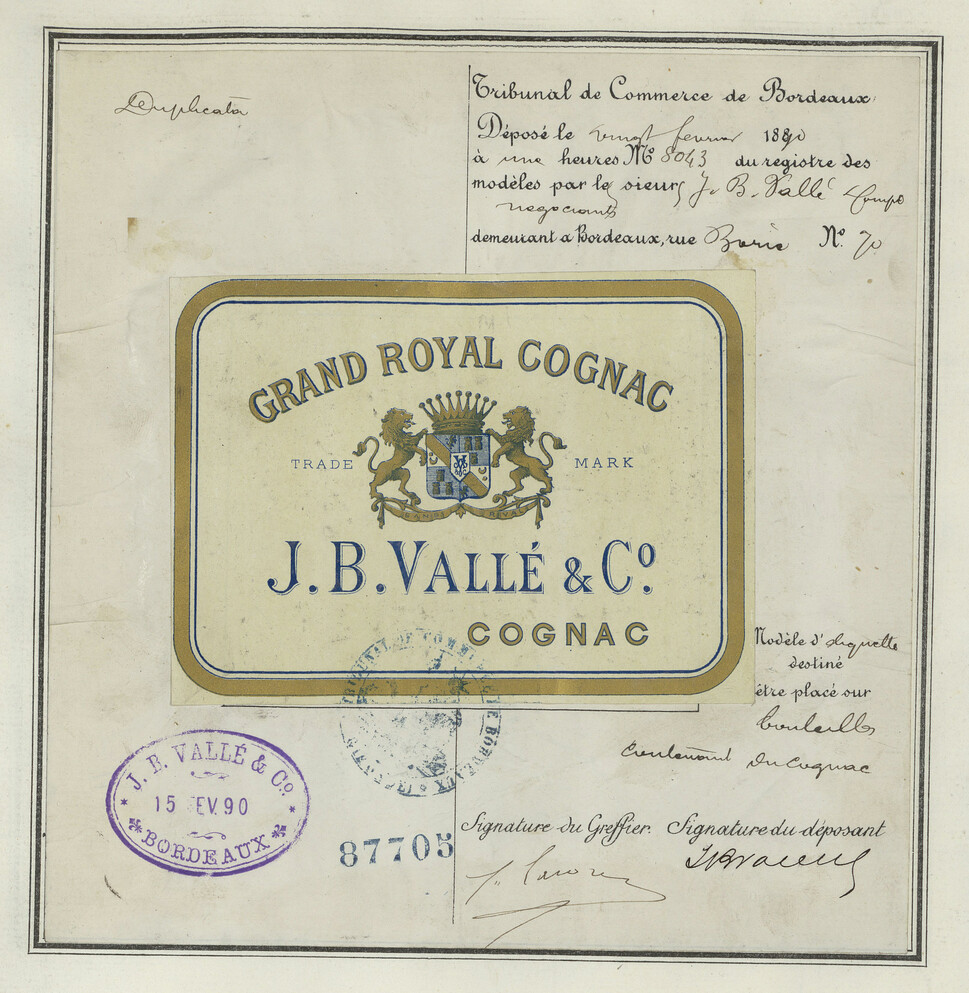 Duplicata
Tribunal de Commerce de Bordeaux
Déposé le vingt fevrier 1890
à une heures No 8043 du registre des
modèles par le sieurs J. B. Vallé & Compe
negociants
demeurant a Bordeaux, rue Borie No. 70
GRAND ROYAL COGNAC
TRADE MARK
GRAND ROYAL
J. B. VALLÉ & Co.
COGNAC
Modèle d'etiquette
destiné
être placé sur
bouteilles
contenant du Cognac
TRIBUNAL DE COMMERCE DE BORDEAUX
J. B. VALLÉ & Co.
15 FEV. 90
BORDEAUX
87705
Signature du Greffier. Signature du déposant